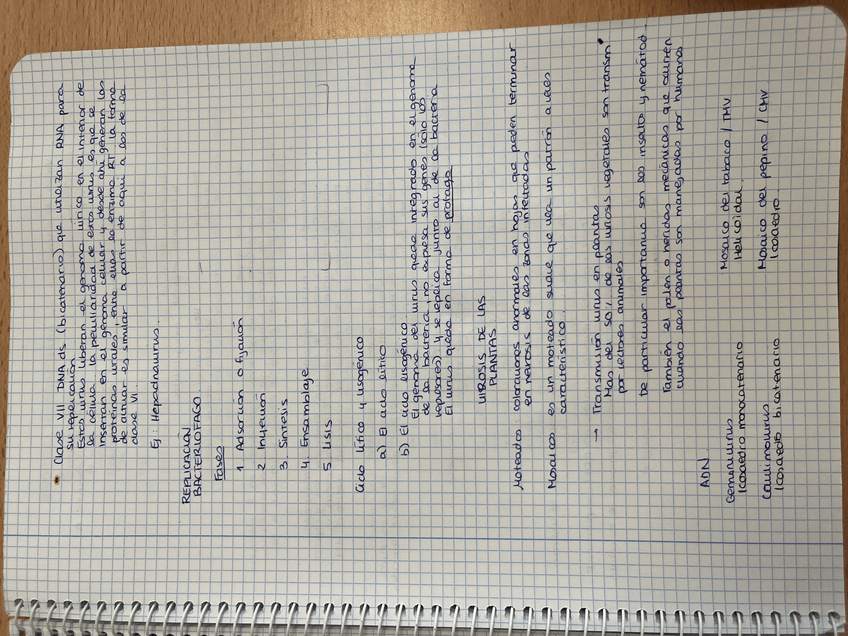 Clase VII DNA ds (bicatenario) que utilizan RNA para
su replicación.
Estos virus liberan el genoma vírico en el interior de
la célula. La peculiaridad de estos virus es que se
insertan en el genoma celular y desde ahí generan las
proteínas virales, entre ellas la enzima RT. La forma
de actuar es similar a partir de aquí a los de la
clase VI.
Ej: Hepadnavirus.
REPLICACIÓN
BACTERIÓFAGO.
Fases
1. Adsorción o fijación
2. Inyección
3. Síntesis
4. Ensamblaje
5. Lisis
Ciclo lítico y lisogénico
a) El ciclo lítico
b) El ciclo lisogénico
El genoma del virus queda integrado en el genoma
de la bacteria, no expresa sus genes (solo los
represores) y se replica junto al de la bacteria
El virus queda en forma de profago
VIROSIS DE LAS
PLANTAS
Moteados coloraciones anormales en hojas que pueden terminar
en necrosis de las zonas infectadas
Mosaicos es un moteado suave que crea un patrón a veces
característico.
→ Transmisión virus en plantas
Mas del 50% de las virosis vegetales son transm.
por vectores animales
De particular importancia son los insectos y nemátod.
También el polen o heridas mecánicas que ocurren
cuando las plantas son manejadas por humanos
ADN
Geminivirus
Icosaedro monocatenario
Caulimovirus
Icosaedro bicatenario
Mosaico del tabaco / TMV
Helicoidal.
Mosaico del pepino / CMV
Icosaedro.